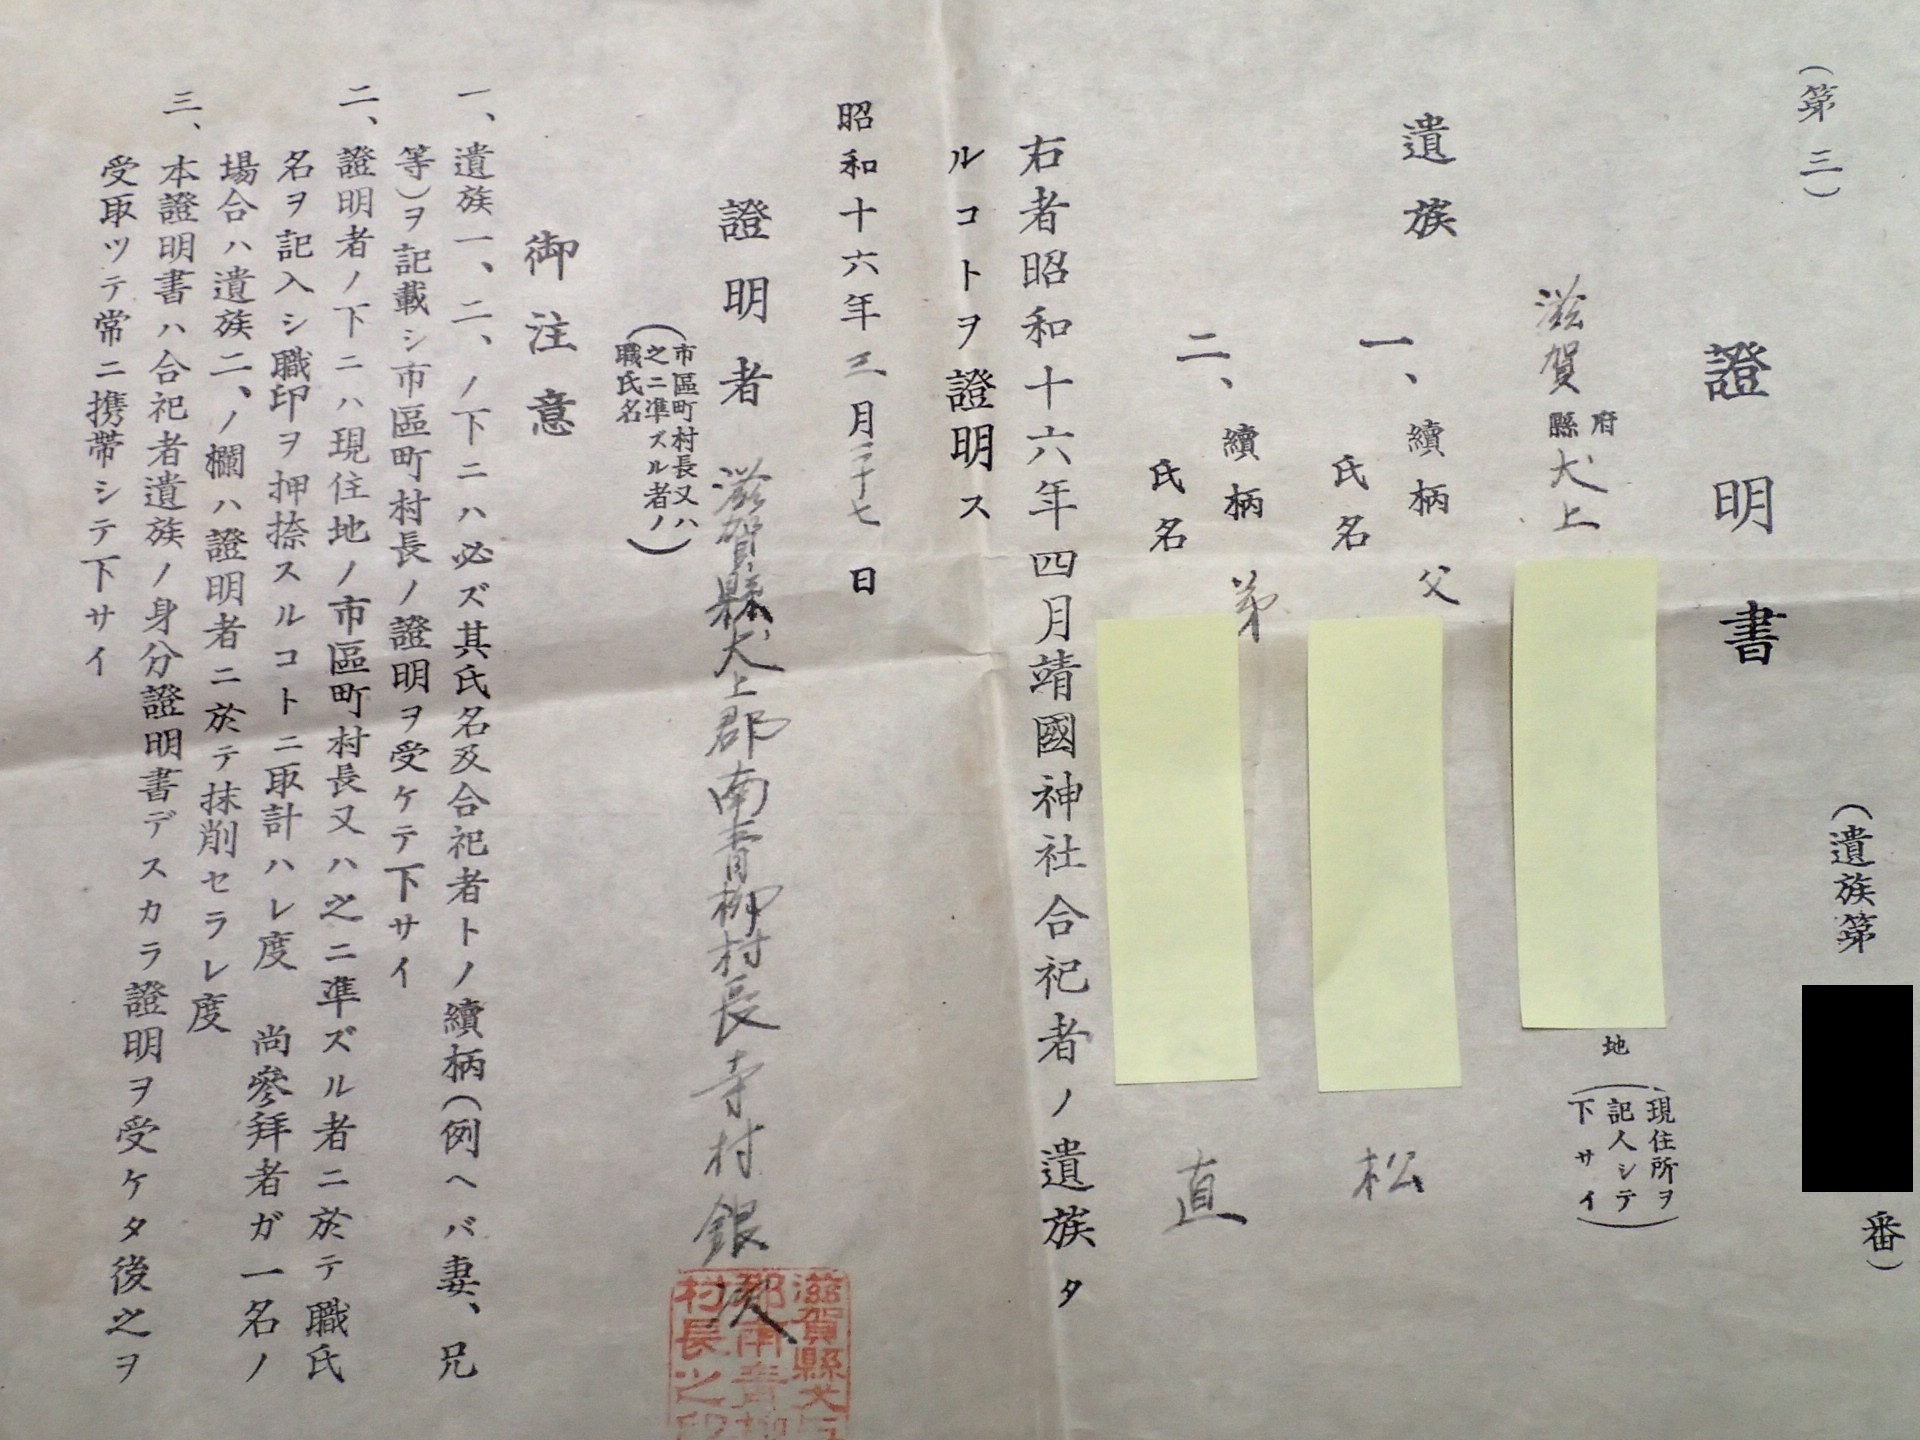 (第三)
(遺族第
番)
證明書
滋賀
府
縣
犬上
地
(現住所ヲ
記入シテ
下サイ)
遺族
一、
續柄
父
氏名
松
二、
續柄
弟
氏名
直
右者昭和十六年四月靖國神社合祀者ノ遺族タ
ルコトヲ證明ス
昭和十六年三月二十七日
證明者
滋賀縣犬上郡南青柳村長寺村銀
(市區町村長又ハ
之ニ準ズル者ノ
職氏名)
滋賀縣犬上
郡南青柳
村長之印
御注意
一、遺族一、二、ノ下ニハ必ズ其氏名及合祀者トノ續柄(例ヘバ妻、兄
等)ヲ記載シ市區町村長ノ證明ヲ受ケテ下サイ
二、證明者ノ下ニハ現住地ノ市區町村長又ハ之ニ準ズル者ニ於テ職氏
名ヲ記入シ職印ヲ押捺スルコトニ取計ハレ度 尚參拜者ガ一名ノ
場合ハ遺族二、ノ欄ハ證明者ニ於テ抹削セラレ度
三、本證明書ハ合祀者遺族ノ身分證明書デスカラ證明ヲ受ケタ後之ヲ
受取ツテ常ニ携帶シテ下サイ